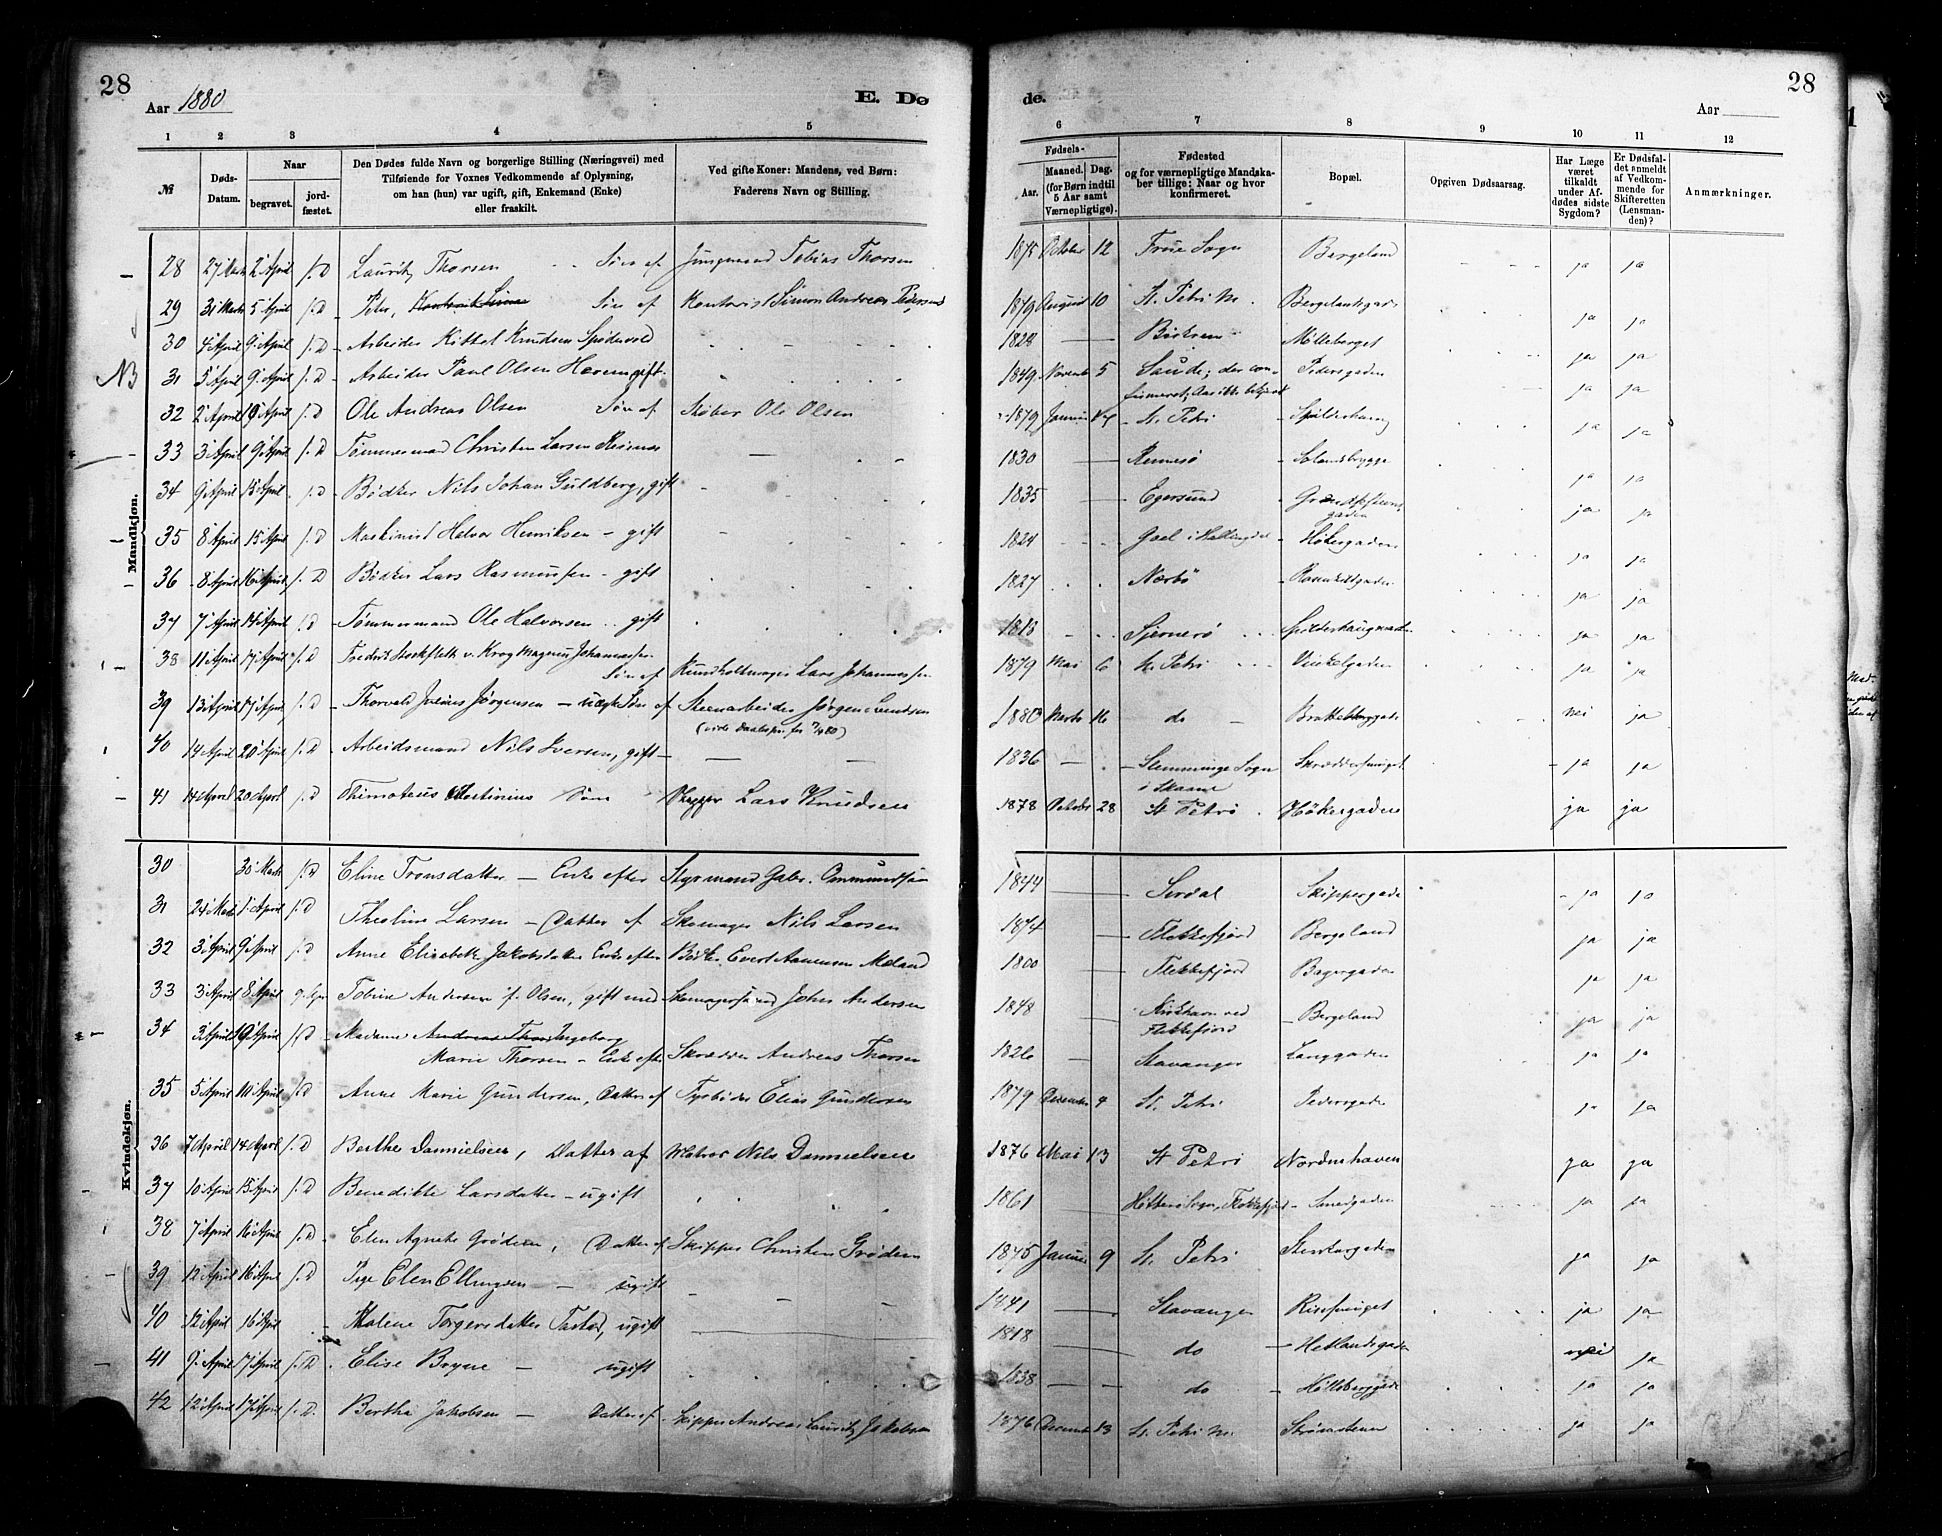 28
Aar 1880
E. Dø
de.
Aar
28
1 2 3 4 5 6 7 8 9 10 11 12
№
Døds-Datum.
Naar
begravet.
jord-fæstet.
Den Dødes fulde Navn og borgerlige Stilling (Næringsvei) med
Tilføiende for Voxnes Vedkommende af Oplysning,
om han (hun) var ugift, gift, Enkemand (Enke)
eller fraskilt.
Ved gifte Koner: Mandens, ved Børn:
Faderens Navn og Stilling.
Fødsels-
Aar.
Maaned. Dag.
(for Børn indtil
5 Aar samt
Værnepligtige).
Fødested
og for værnepligtige Mandska-
ber tillige: Naar og hvor
konfirmeret.
Bopæl.
Opgiven Dødsaarsag.
Har Læge
været
tilkaldt
under Af-
dødes sidste
Sygdom?
Er Dødsfal-
det anmeldt
af Vedkom-
mende for
Skifteretten
(Lensman-
den)?
Anmærkninger.
Mandkjøn.
28 27 Marts 2 April f. D Lauritz Thorsen Søn af Jungmand Tobias Thorsen 1875 October 12 Frue Sogn Bergeland ja ja
29 31 Marts 5 April f. D Peter, Søn af Kontorist Simon Andreas Pedersen 1879 August 10 St. Petri M. Bergelandsgad ja ja
30 4 April 9 April f. D Arbeider Kittel Knudsen 1824 Mølleberget ja ja
NB
31 5 April 9 April f. D Arbeider Paul Olsen gift 1849 Novemb 5 Saude; der con- Pedersgaden ja ja
32 2 April 9 April f. D Ole Andreas Olsen Søn af Støber Ole Olsen 1879 Januar St. Petri Spilderhaug ja ja
33 3 April 9 April f. D Tømmermand Christen Larsen 1830 Rennesø ja ja
34 9 April 15 April f. D Bødker Nils Johan Guldberg, gift 1835 Egersund gaden ja ja
35 8 April 15 April f. D Maskinist Halvor Henriksen – gift 1824 Goel i Hallingdal Høkergaden ja ja
36 8 April 16 April f. D Bødker Lars Rasmussen – gift 1827 Nærbø Rosenkildgaden ja ja
37 7 April 14 April f. D Tømmermand Ole Halvorsen gift 1813 Sjernerø Spilderhauggaden ja ja
38 11 April 17 April f. D Fredrik Stockfleth v. Krog Magnus Johannessen
Søn af Lars Johannessen 1879 Mai 6 St. Petri Vinkelgaden ja ja
39 13 April 17 April f. D Thorvald Julius Jørgensen – uægte Søn af Steenarbeider Jørgen 1880 Marts 16 do nei ja
40 14 April 20 April f. D Arbeidsmand Nils Iversen, gift 1836 Stemminge Sogn ja ja
i Skaane
41 14 April 20 April f. D Thimoteus Martinius Søn Skipper Lars Knudsen 1878 28 St Petri Høkergaden ja ja
Kvindekjøn.
30 30 Marts f. D Eline Tronsdatter – Enke efter Styrmand Gabr. Ommundsen 1844 Sirdal Skippergade ja ja
31 24 Marts 1 April f. D Theoline Larsen – Datter af Skomager Nils Larsen 1874 Flekkefjord Bergeland ja ja
32 3 April 9 April f. D Anne Elisabeth Jakobsdatter Enke efter Bødker Evert Aanensen Meland 1800 Flekkefjord Bagergaden ja ja
33 3 April 8 April Tobine Andersen f. Olsen, gift med John Andersen 1848 ved
Flekkefjord Bergeland ja ja
34 3 April 9 April f. D Madame Ingeborg
Marie Thorsen – Enke efter Skrædder Andreas Thorsen 1826 Stavanger Langgaden ja ja
35 5 April 10 April f. D Anne Marie Gundersen, Datter af Elias Gundersen 1879 December 4 St. Petri Pedersgade ja ja
36 7 April 14 April f. D Berthe Dannielsen, Datter af Matros Nils Dannielsen 1876 Mai 13 St Petri Nordenshaven ja ja
37 10 April 15 April f. D Benedikte Larsdatter – ugift 1861 Hitterø Sogn, Flekkefjord Smedgaden ja ja
38 7 April 16 April f. D Elen Agnete Grødem, Datter af Skipper Christen Grødem 1875 Januar 9 St. Petri ja ja
39 12 April 16 April f. D Pige Elen Ellingsen – ugift 1841 Stavanger ja ja
40 12 April 16 April Malene Torgersdatter Tastad, ugift 1818 do Hetlandsgaden nei ja
41 9 April 17 April f. D. Elise Bryne – ugift 1838 do ja ja
42 12 April 17 April f. D. Bertha Jakobsen – Datter af Skipper Andreas Lauritz Jakobsen 1876 December 13 St. Petri M. ja ja